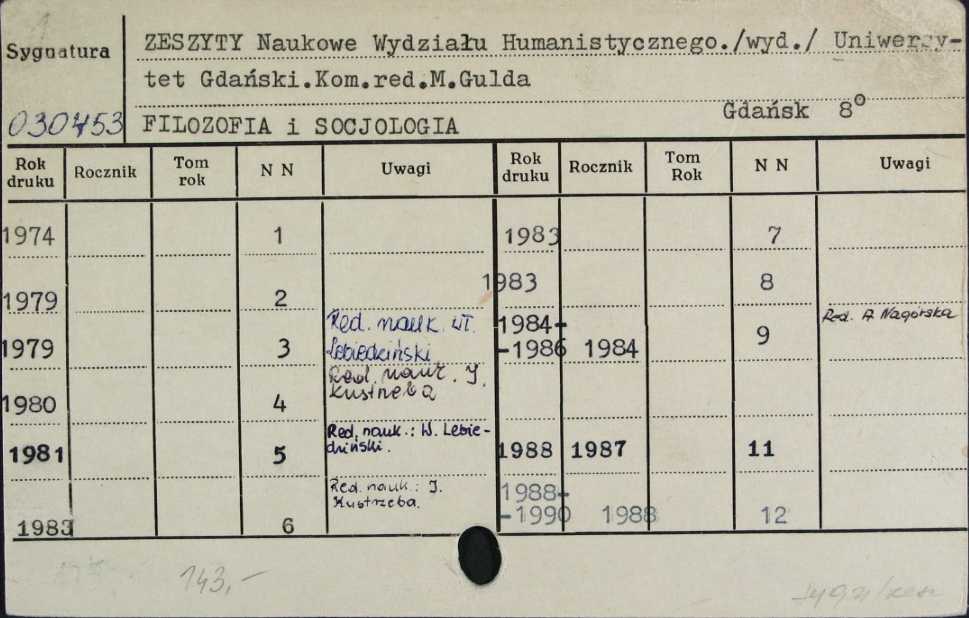 Sygnatura
ZESZYTY Naukowe Wydziału Humanistycznego./wyd./ Uniwersy-
tet Gdański.Kom.red.M.Gulda
Gdańsk 8°
030453 FILOZOFIA i SOCJOLOGIA
Rok druku Rocznik Tom rok N N Uwagi Rok druku Rocznik Tom Rok N N Uwagi
1974 1 1983 7
1979 2 1983 8
1979 3 Red. nauk. Wł. Lebiedziński 1984- -1986 1984 9 Red. A Nagórska
1980 4 Red. nauk. J. Kustrzeba
1981 5 Red. nauk.: W. Lebie- dziński. 1988 1987 11
1983 6 Red. nauk.: J. Kustrzeba. 1988- -1990 1988 12
143,-